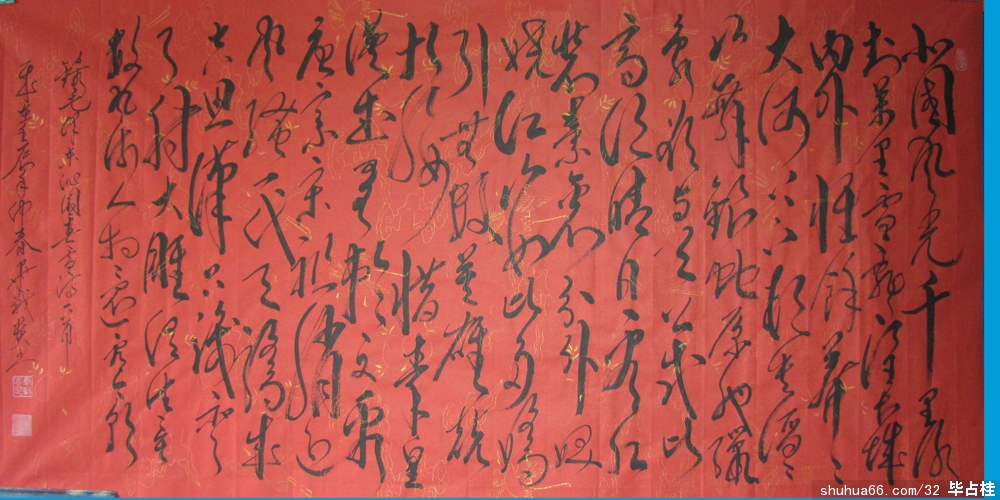 北国风光千里冰
封万里雪飘望长城
内外惟馀莽莽
大河上下顿失滔滔
山舞银蛇原驰蜡
象欲与天公试比
高须晴日看红
装素裹分外妖
娆江山如此多娇
引无数英雄竞
折腰惜秦皇
汉武略输文采
唐宗宋祖稍逊
风骚一代天骄成
吉思汗只识弯
弓射大雕俱往矣
数风流人物还看今朝
录毛泽东沁园春雪词一首
shuhua66.com/32 毕占桂